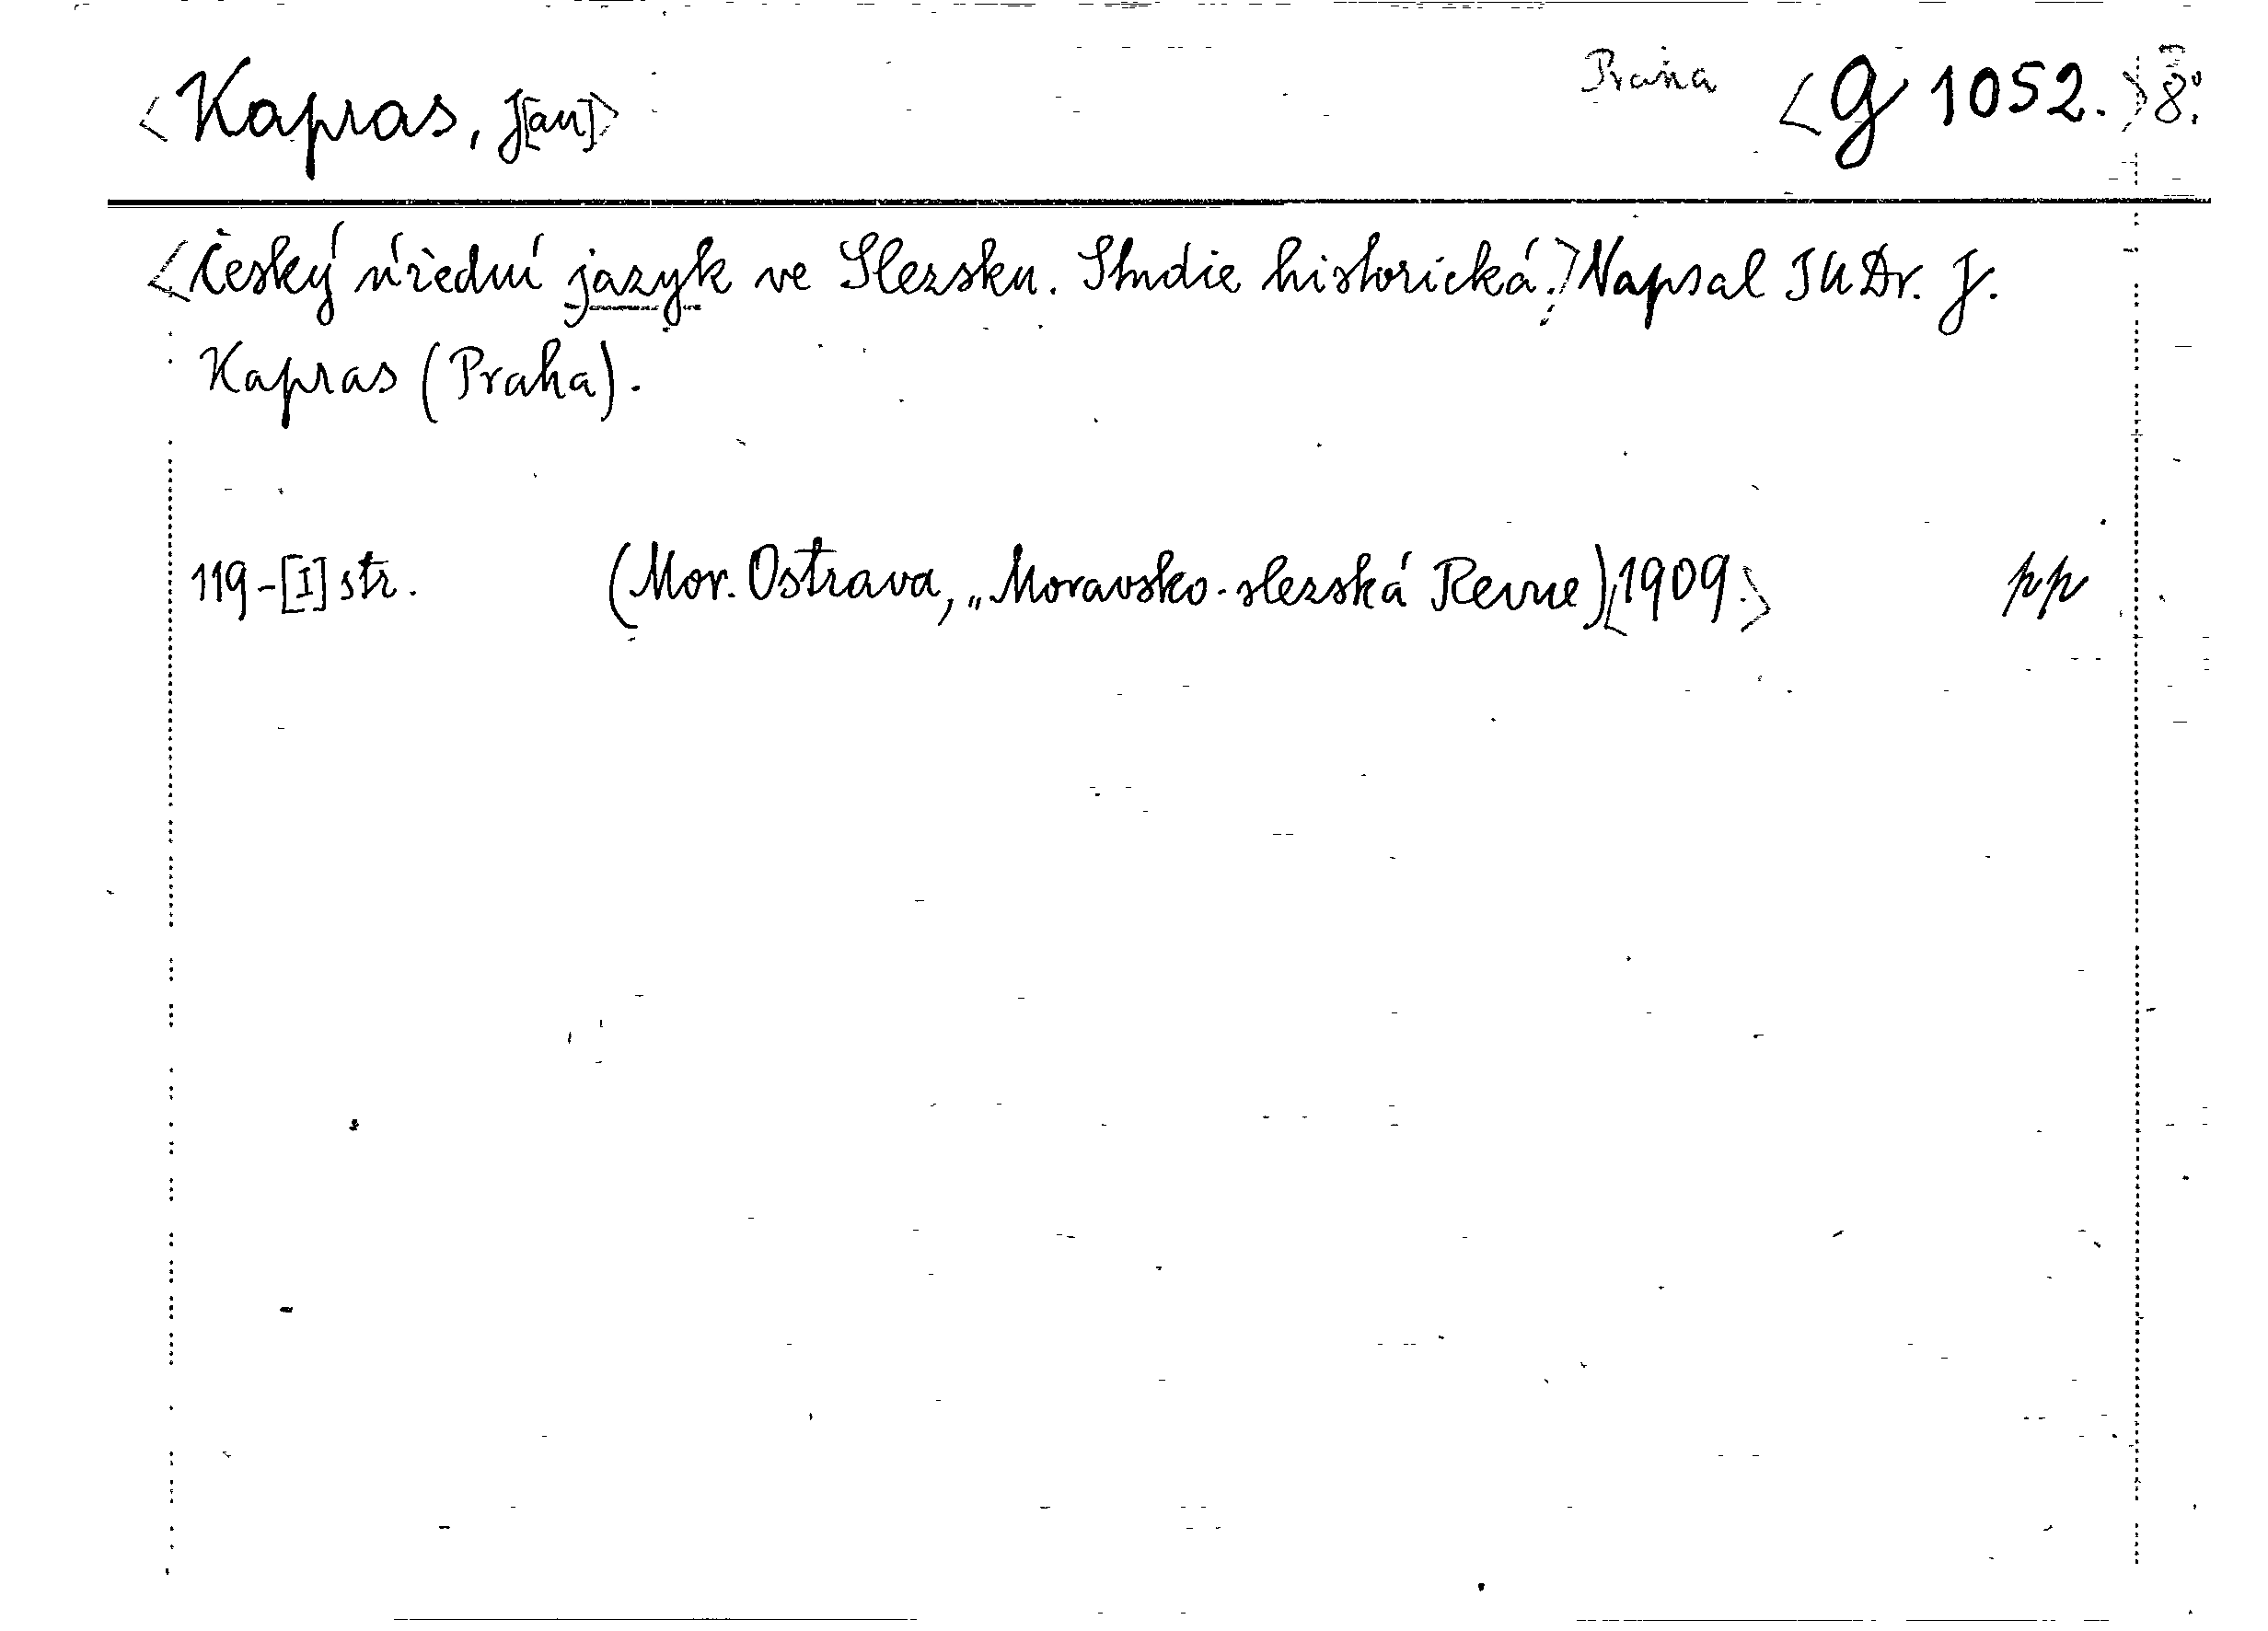 <Kapras, J[an]> Praha <G 1052.> 8°.
<Český úřední jazyk ve Slezsku. Studie historická.> Napsal JUDr. J.
Kapras (Praha).
119-[I] str. (Mor. Ostrava, „Moravsko-slezská Revue) <1909.> pp